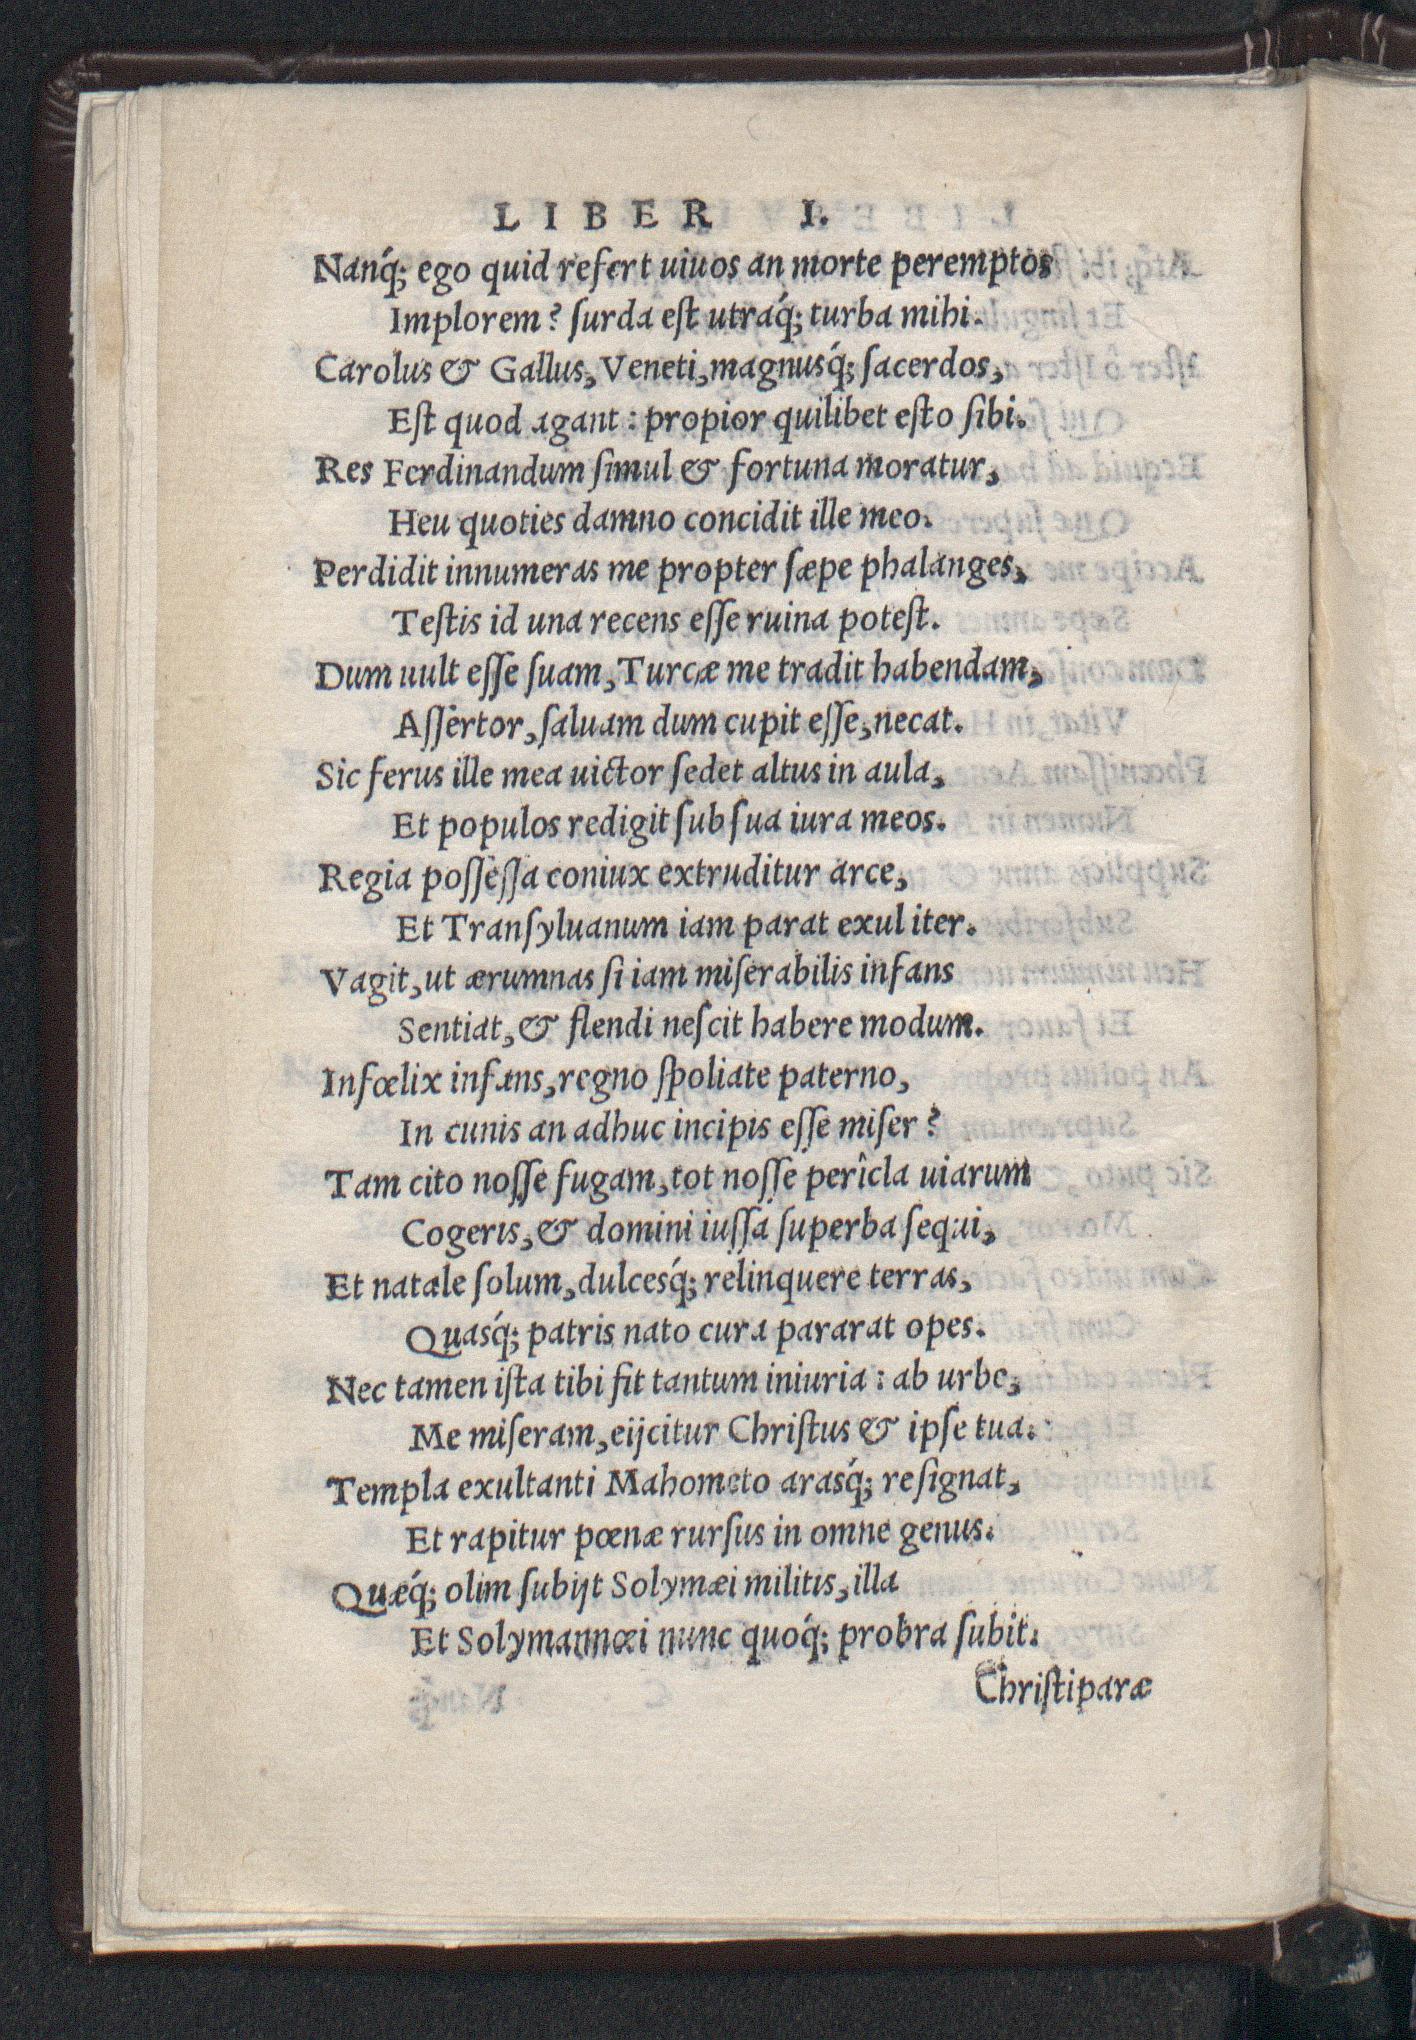 LIBER I.
Nanq́; ego quid refert uiuos an morte peremptos
Implorem? ſurda eſt utraq́; turba mihi.
Carolus & Gallus, Veneti, magnusq́; ſacerdos,
Eſt quod agant: propior quilibet eſto ſibi.
Res Ferdinandum ſimul & fortuna moratur,
Heu quoties damno concidit ille meo.
Perdidit innumeras me propter ſæpe phalanges,
Teſtis id una recens eſſe ruina poteſt.
Dum uult eſſe ſuam, Turcæ me tradit habendam,
Aſſertor, ſaluam dum cupit eſſe, necat.
Sic ferus ille mea uictor ſedet altus in aula,
Et populos redigit ſub ſua iura meos.
Regia poſſeſſa coniux extruditur arce,
Et Tranſyluanum iam parat exul iter.
Vagit, ut ærumnas ſi iam miſerabilis infans
Sentiat, & flendi neſcit habere modum.
Infœlix infans, regno ſpoliate paterno,
In cunis an adhuc incipis eſſe miſer?
Tam cito noſſe fugam, tot noſſe perîcla uiarum
Cogeris, & domini iuſſa ſuperba ſequi,
Et natale ſolum, dulcesq́; relinquere terras,
Quasq́; patris nato cura pararat opes.
Nec tamen iſta tibi fit tantum iniuria: ab urbe,
Me miſeram, eijcitur Chriſtus & ipſe tua.
Templa exultanti Mahometo arasq́; reſignat,
Et rapitur pœnæ rurſus in omne genus.
Quæq́; olim ſubijt Solymæi militis, illa
Et Solymannæi nunc quoq́; probra ſubit.
Chriſtiparæ